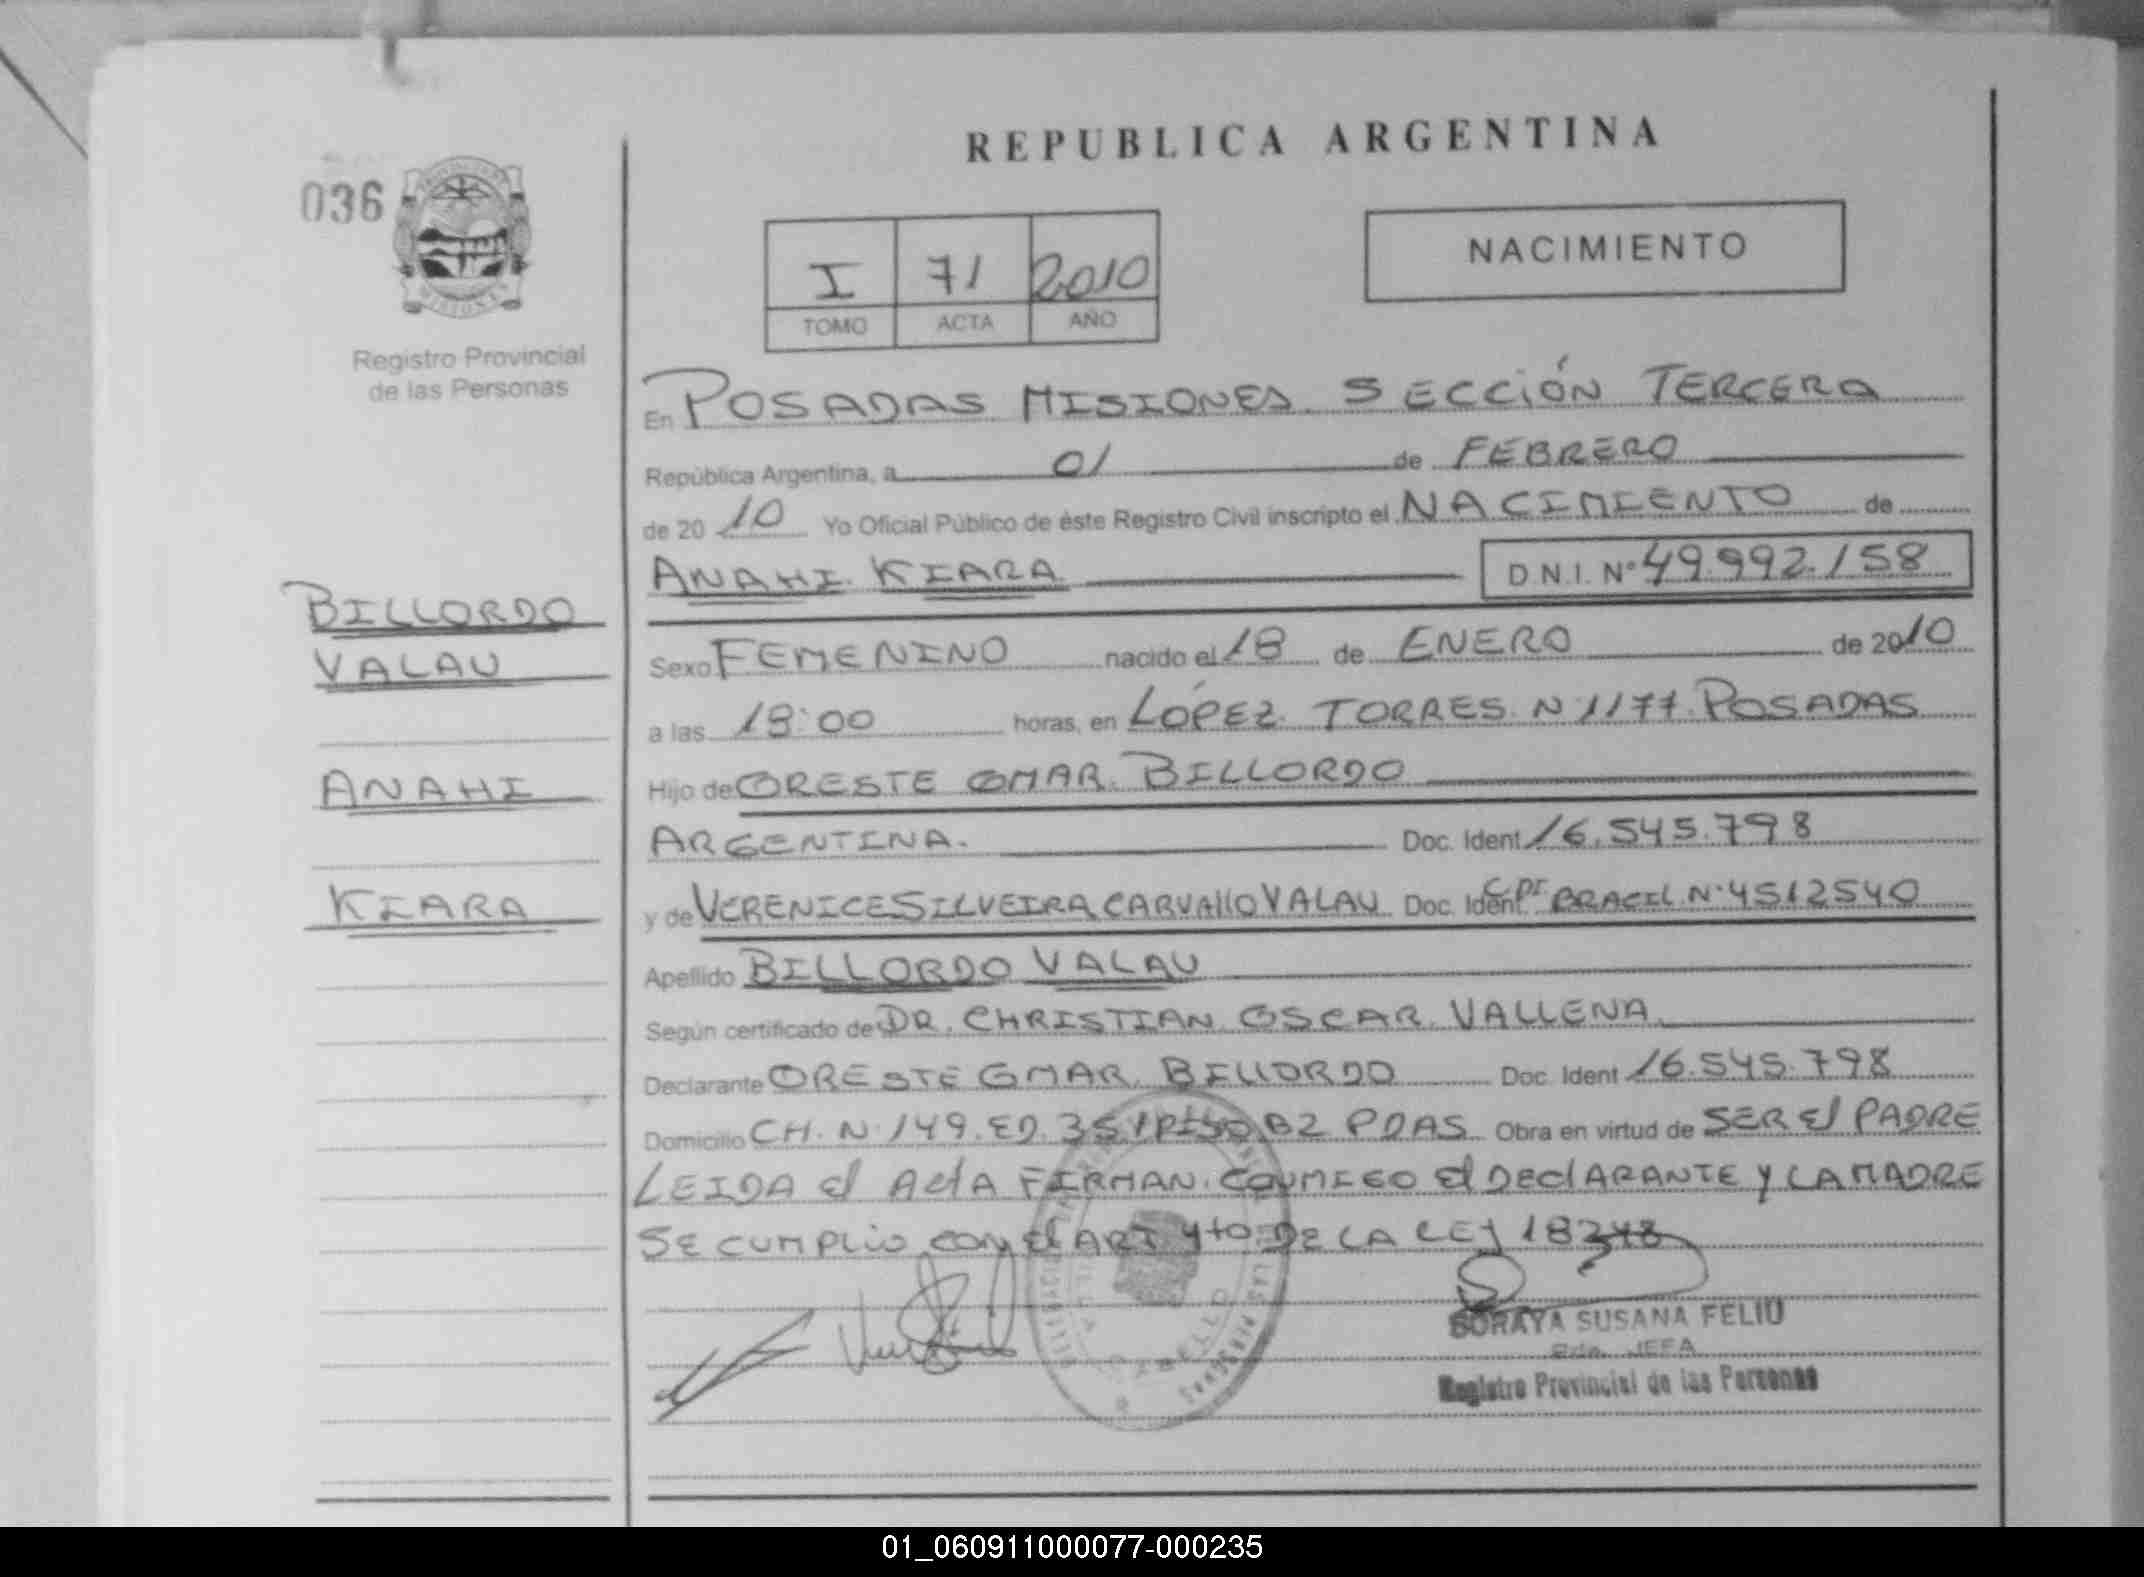 REPUBLICA ARGENTINA
036
NACIMIENTO
I 71 2010
TOMO ACTA AÑO
Registro Provincial
de las Personas
En POSADAS MISIONES. SECCIÓN TERCERA
República Argentina, a 01 de FEBRERO
de 20 10 Yo Oficial Público de éste Registro Civil inscripto el NACIMIENTO de
ANAHI KIARA D.N.I. Nº 49.992.158
BILLORDO
VALAU
ANAHI
KIARA
Sexo FEMENINO nacido el 18 de ENERO de 2010
a las 18:00 horas, en LÓPEZ TORRES N 1177 POSADAS
Hijo de ORESTE OMAR BILLORDO
ARGENTINA. Doc. Ident 16.545.798
y de VERENICE SILVEIRA CARVAllO VALAU Doc. Ident. CPI BRACIL N·4512540
Apellido BILLORDO VALAU
Según certificado de DR. CHRISTIAN OSCAR VALLENA
Declarante ORESTE OMAR BILLORDO Doc. Ident 16.545.798
Domicilio CH. N·149. ED. 35 1 PISO B2 PDAS Obra en virtud de SER El PADRE
LEIDA el ActA FIRMAN CONMIGO El DEClARANTE y LA MADRE
SE CUMPLIO CON El ART 4to DE LA LEY 18248
SORAYA SUSANA FELIU
JEFA
Registro Provincial de las Personas
01_060911000077-000235